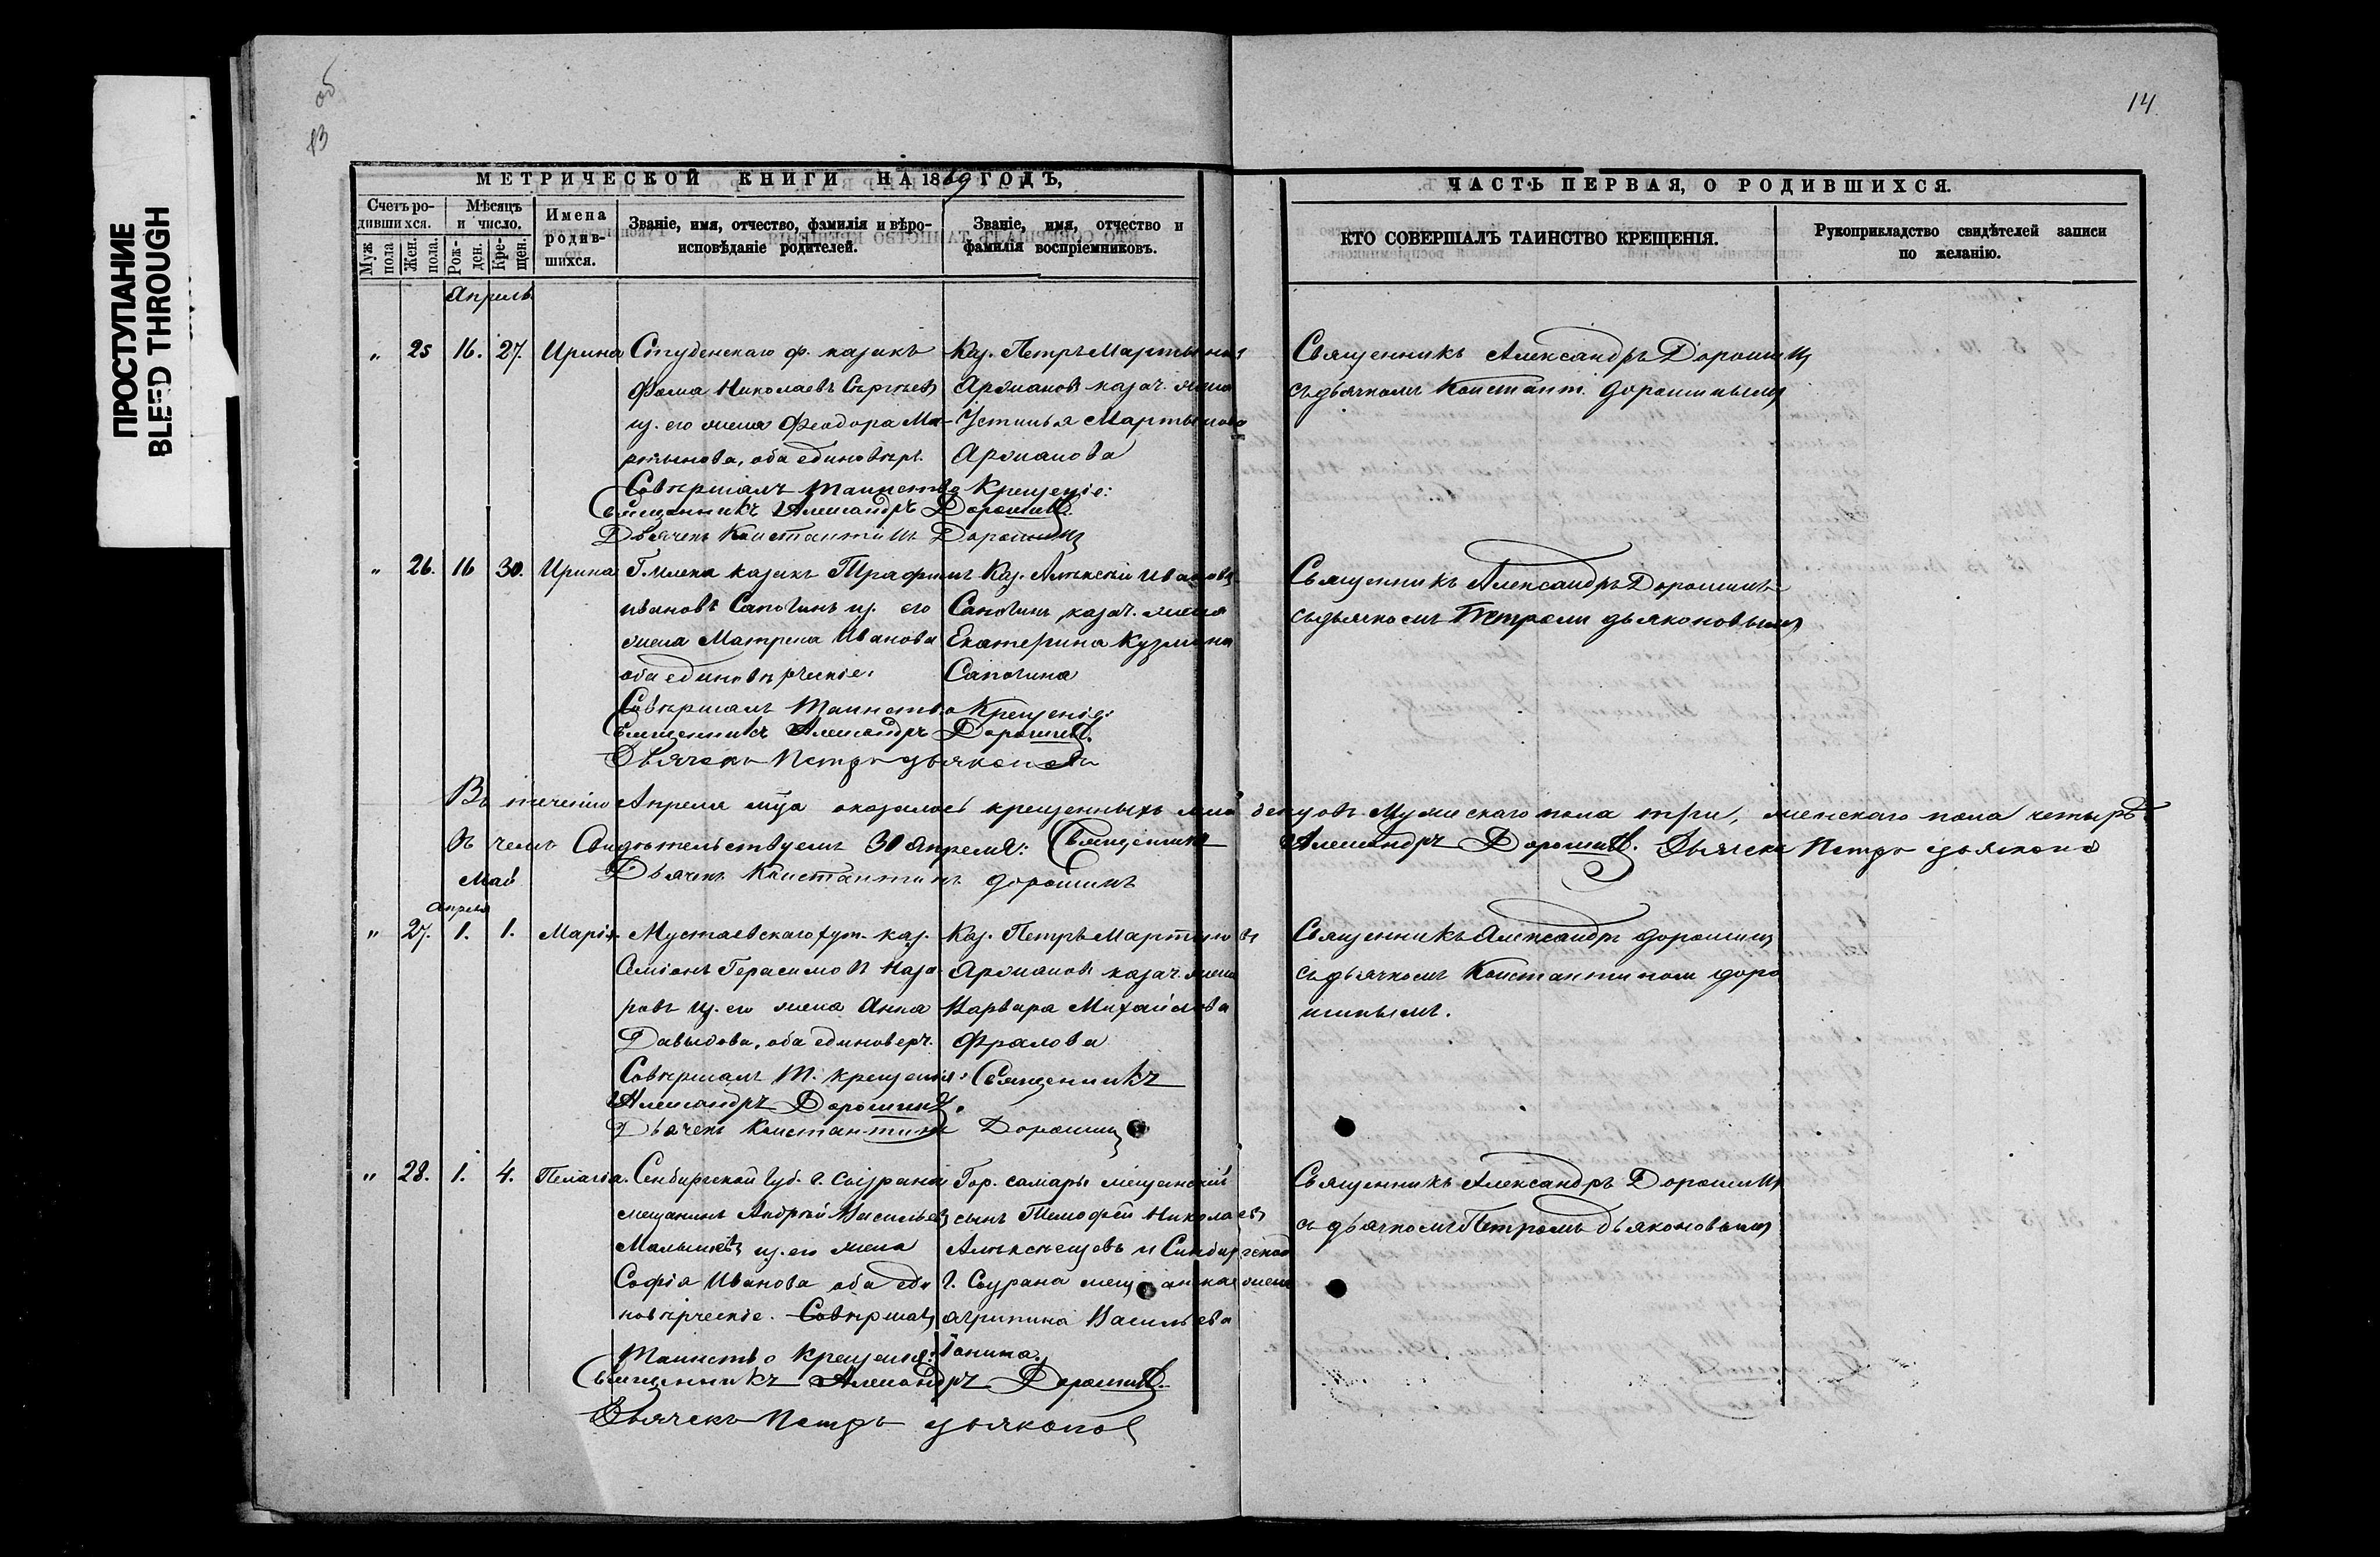 ПРОСТУПАНИЕ
BLEED THROUGH
13 об
14
МЕТРИЧЕСКОЙ КНИГИ НА 1869 ГОДЪ,
Счетъ ро-
дившихся.
Муж пола
Жен. пола.
Мѣсяцъ
и число.
Рож-
ден.
Кре-
щен.
Имена
родив-
шихся.
Званіе, имя, отчество, фамилія и вѣро-
исповѣданіе родителей.
Званіе, имя, отчество и
фамилія воспріемниковъ.
ЧАСТЬ ПЕРВАЯ, О РОДИВШИХСЯ.
КТО СОВЕРШАЛЪ ТАИНСТВО КРЕЩЕНІЯ.
Рукоприкладство свидѣтелей записи
по желанію.
Апрель
" 25 16. 27. Ирина
Студенскаго ф. казакъ
Фома Николаевъ Сергѣевъ
из. его жена Феодора Ма-
ртынова, оба единовѣр.
Каз. Петръ Мартыновъ
Аржановъ казач. жена
Устинья Мартынова
Аржанова
Священникъ Александръ Дорошинъ
съ дьячкомъ Констант. Дорошинымъ
Совершалъ таинство Крещеніе:
Священникъ Александръ Дорошинъ.
Дьячекъ Константинъ Дорошинъ
" 26. 16 30. Ирина
Г. Илека казакъ Трафимъ
Ивановъ Сапогинъ из. его
жена Матрена Иванова
оба единовѣрческіе.
Каз. Алѣксѣй Ивановъ
Сапогинъ, казач. жена
Екатерина Кузмина
Сапогина
Священникъ Александръ Дорошинъ
съ дьячкомъ Петромъ Дьяконовымъ
Совершалъ таинство Крещеніе:
Священникъ Александръ Дорошинъ.
Дьячекъ Петръ Дьяконовъ
Въ теченіи Апреля м-ца оказалось крещенныхъ младенцовъ Мужескаго пола три, женскаго пола четыре
Въ чемъ Свидѣтельствуемъ 30 Апреля: Священникъ Александръ Дорошинъ. Дьячекъ Петръ Дьяконов
Дьячекъ Константинъ Дорошинъ
Май
Апреля
" 27. 1. 1. Марія
Мустаевскаго хут. каз.
Симіонъ Герасимовъ Наза-
ровъ из. его жена Анна
Давыдова, оба единоверч.
Каз. Петръ Мартыновъ
Аржановъ казач. жена
Варвара Михайлова
Фралова
Священникъ Александръ Дорошинъ
съ дьячкомъ Константином Доро
шинымъ.
Совершалъ т. крещенія: Священникъ
Александръ Дорошинъ.
Дьячекъ Константинъ Дорошинъ
" 28. 1. 4. Пелагіа.
Сенбирской Губ. г. Сызрана
мещанинъ Андрѣй Васильевъ
Малышевъ из. его жена
Софія Иванова оба еди
новѣрческіе. Совершалъ
Гор. Самары мещанскій
сынъ Тимофей Николаевъ
Алѣксѣецевъ и Синбирской
г. Сызрана мещанская жена
Агрипина Васильева
Священникъ Александръ Дорошинъ
съ дьячкомъ Петромъ Дьяконовымъ
Таинство Крещенія:
Священникъ Александръ Дорошинъ.
Дьячекъ Петръ Дьяконов